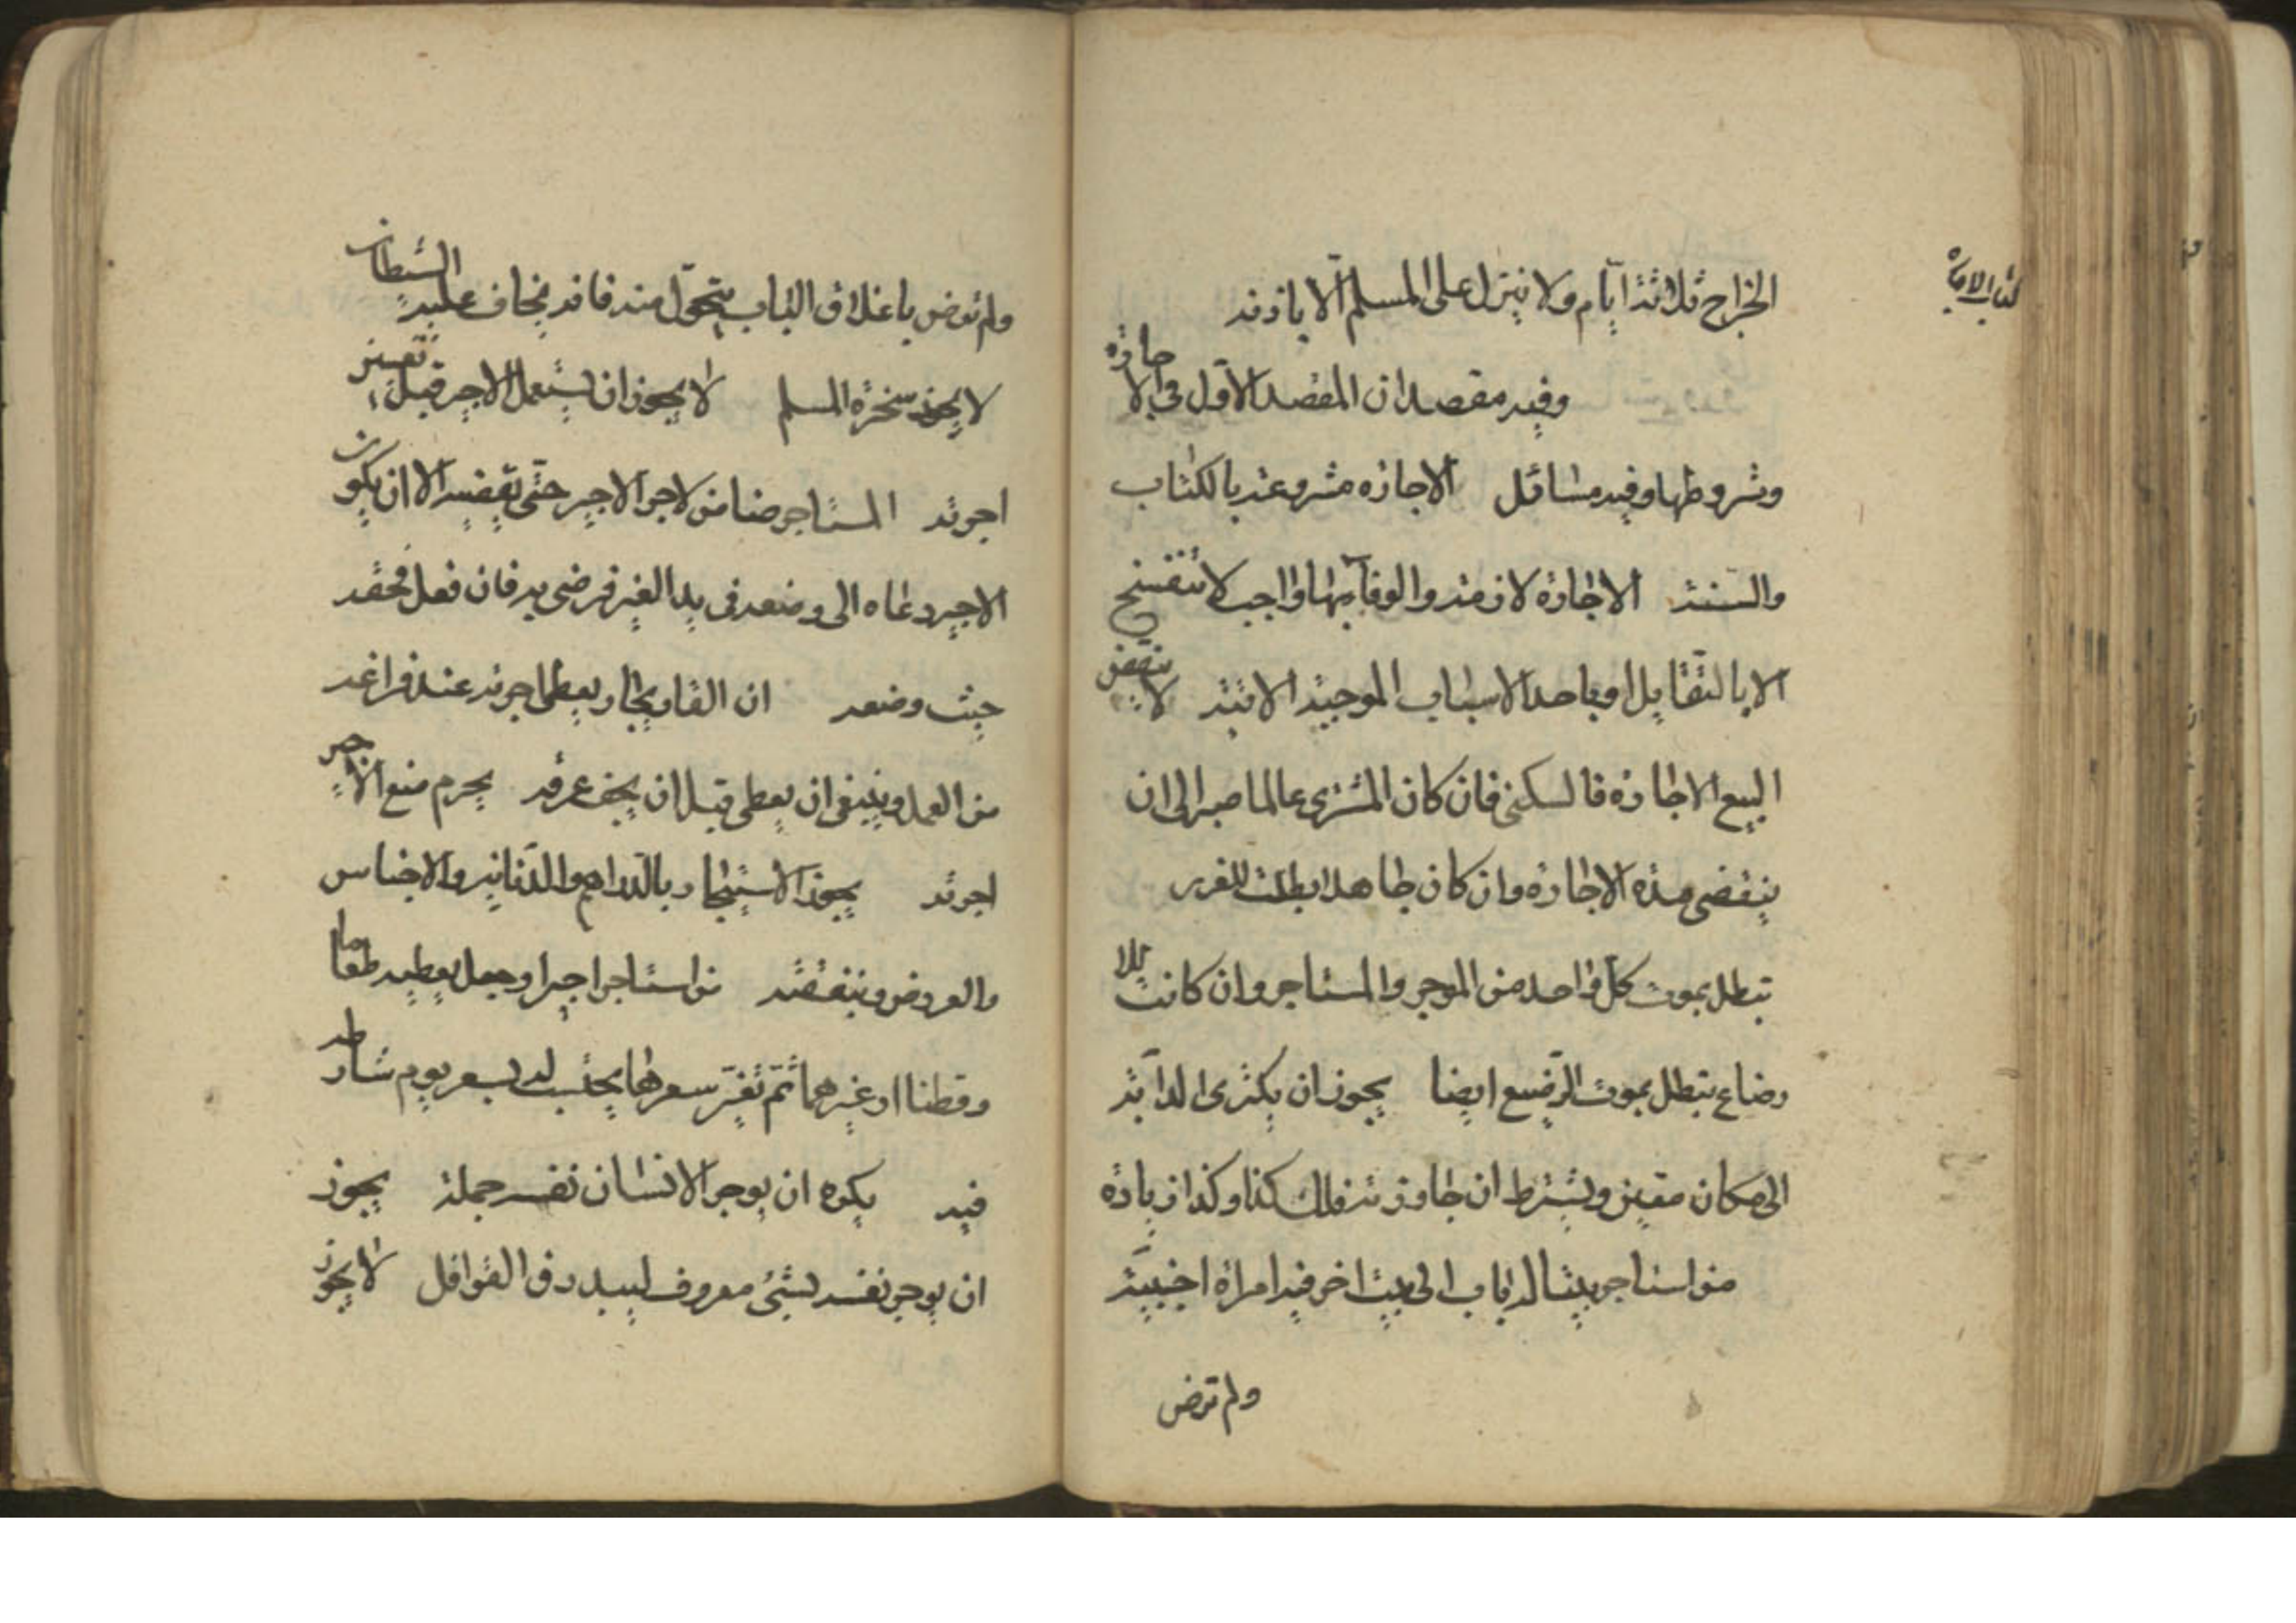 كتاب الاجارة
الخراج ثلاثة ايام ولا ينزل على المسلم الا باذنه
وفيه مقصدان المقصد الاول في الاجارة
وشروطها وفيه مسائل الاجارة مشروعة بالكتاب
والسنة الاجارة لازمة والوفآء بها واجب لا تنفسخ
الا بالتقايل او باحد الاسباب الموجبة الاتية لا ينقض
البيع الاجارة فالسكنى فان كان المشترى عالما صبر الى ان
ينقضى هذه الاجارة وان كان جاهلا بطلت للغرر
تبطل بموت كل واحد من الموجر والمستاجر وان كانت للا
رضاع تبطل بموت الرضيع ايضا يجوز ان يكترى الدآبة
الى مكان معين ويشترط ان جاوزته فلك كذا وكذا زيادة
من استاجر بيتا له باب الى بيت اخر فيه امراة اجنبية
ولم ترض
ولم ترض باغلاق الباب يتحول منه فانه يخاف عليه الشيطان
لا يجوز سخرة المسلم لا يجوز ان يستعمل الاجير قبل تعيين
اجرته المستاجر ضامن لاجر الاجير حتى يقضيه الا ان يكون
الاجير دعاه الى وضعه فى يد الغير فرضى به فان فعل فحقه
حيث وضعه ان القا ويعطى اجرته عند فراغه
من العمل وينبغى ان يعطى قبل ان يجف عرقه يحرم منع الاجير
اجرته يجوز الاستيجار بالدراهم والدنانير والاجناس
والعروض وبنفقته من استاجر اجيرا وجعل يعطيه طعاما
وقطنا او غيرهما ثم تغير سعرها يحتسب له بسعر يوم شارطه
فيه يكره ان يوجر الانسان نفسه جملة يجوز
ان يوجر نفسه لشئ معروف ليبدرق القوافل لا يجوز